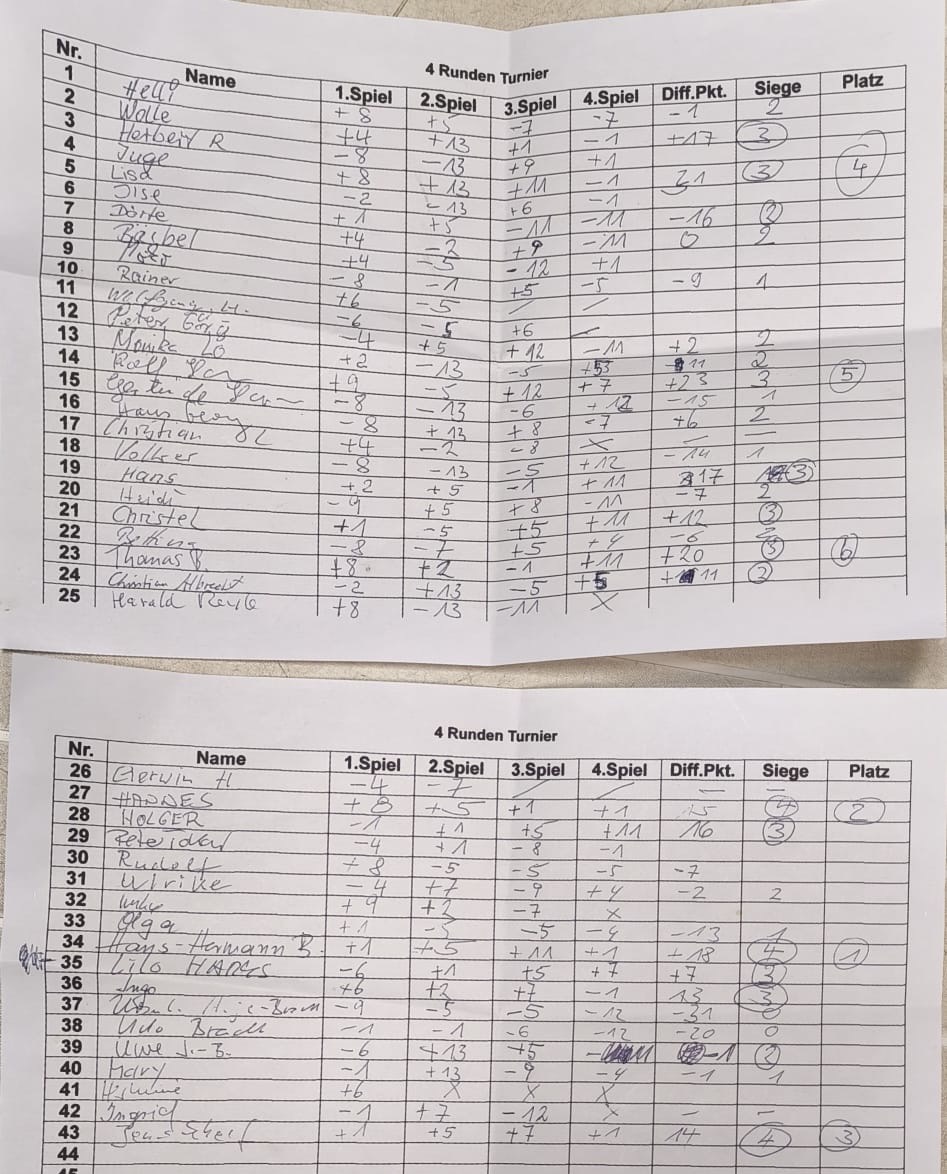 4 Runden Turnier
Nr. Name 1.Spiel 2.Spiel 3.Spiel 4.Spiel Diff.Pkt. Siege Platz
1 Helli +8 +5 -7 -7 -1 2
2 Wolle +4 +13 +1 -1 +17 3
3 Herbert R -8 -13 +9 +1
4 Juge +8 +13 +11 -1 31 3 4
5 Lisa -2 -13 +6 -1
6 Ilse +1 +5 -11 -11 -16 2
7 Dörte +4 -2 +9 -11 0 2
8 Bärbel +4 -5 -12 +1
9 -8 -1 +5 -5 -9 1
10 Rainer +6 -5 / /
11 Wolfgang H. -6 -5 +6
12 Peter -4 +5 +12 -11 +2 2
13 Monika Lö +2 -13 -5 11 2
14 Rolf +9 -5 +12 +7 +23 3 5
15 -8 -13 -6 +12 -15 1
16 Hans Georg -8 +13 +8 -7 +6 2
17 Christian +4 -2 -8 X — —
18 Volker -8 -13 -5 +12 -14 1
19 Hans +2 +5 -1 +11 17 3
20 Heidi -9 +5 +8 -11 -7 2
21 Christel +1 -5 +5 +11 +12 3
22 -8 -7 +5 +4 -6 2
23 Thomas B. +8 +2 -1 +11 +20 3 6
24 Christian Albrecht -2 +13 -5 +5 +11 2
25 Harald +8 -13 -11 X
4 Runden Turnier
Nr. Name 1.Spiel 2.Spiel 3.Spiel 4.Spiel Diff.Pkt. Siege Platz
26 Gerwin H -4 -7 / / — —
27 HANNES +8 +5 +1 +1 15 4 2
28 HOLGER -1 +1 +5 +11 16 3
29 -4 +1 -8 -1
30 Rudolf +8 -5 -5 -5 -7
31 Ulrike -4 +7 -9 +4 -2 2
32 +9 +2 -7 X
33 Olga +1 -5 -5 -4 -13 1
34 Hans-Hermann B. +1 +5 +11 +1 +18 4 1
35 Lilo -6 +1 +5 +7 +7 3
36 Ingo +6 +2 +7 -1 13 3
37 -9 -5 -5 -12 -31 0
38 Udo -1 -1 -6 -12 -20 0
39 Uwe J.-B. -6 +13 +5 11 -1 2
40 Mary -1 +13 -9 -4 -1 1
41 +6 X X X
42 Ingrid -1 +7 -12 X — —
43 Jens +1 +5 +7 +1 14 4 3
44
45